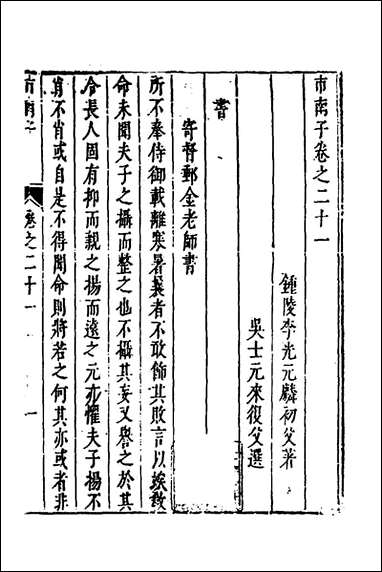 市南子卷之二十一
鍾陵李光元麟初父著
吳士元來復父選
書
寄督郵金老師書
所不奉侍御載離寒暑曩者不敢飾其敗言以俟教
命未聞夫子之攝而整之也不攝其妄又譽之於其
令長人固有抑而親之揚而遠之元亦懼夫子揚不
肖不肖或自是不得聞命則將若之何其亦或者非
市南子
卷之二十一
一